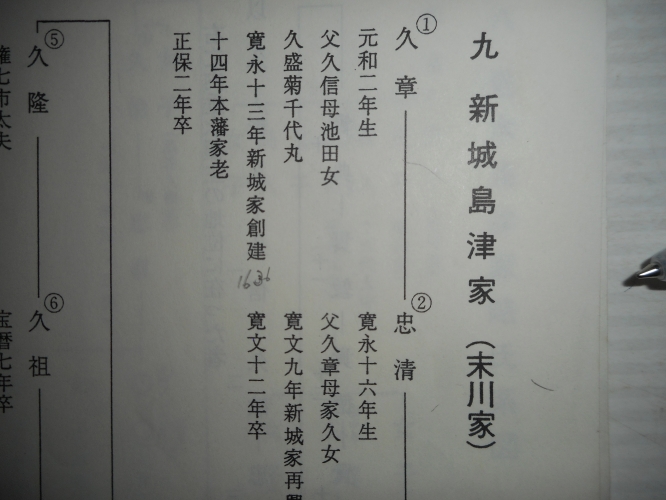 九 新城島津家（末川家）
① 久章
元和二年生
父久信母池田女
久盛菊千代丸
寛永十三年新城家創建
1636
十四年本藩家老
正保二年卒
② 忠清
寛永十六年生
父久章母家久女
寛文九年新城家再興
寛文十二年卒
⑤ 久隆
権七市太夫
⑥ 久祖
宝暦七年卒